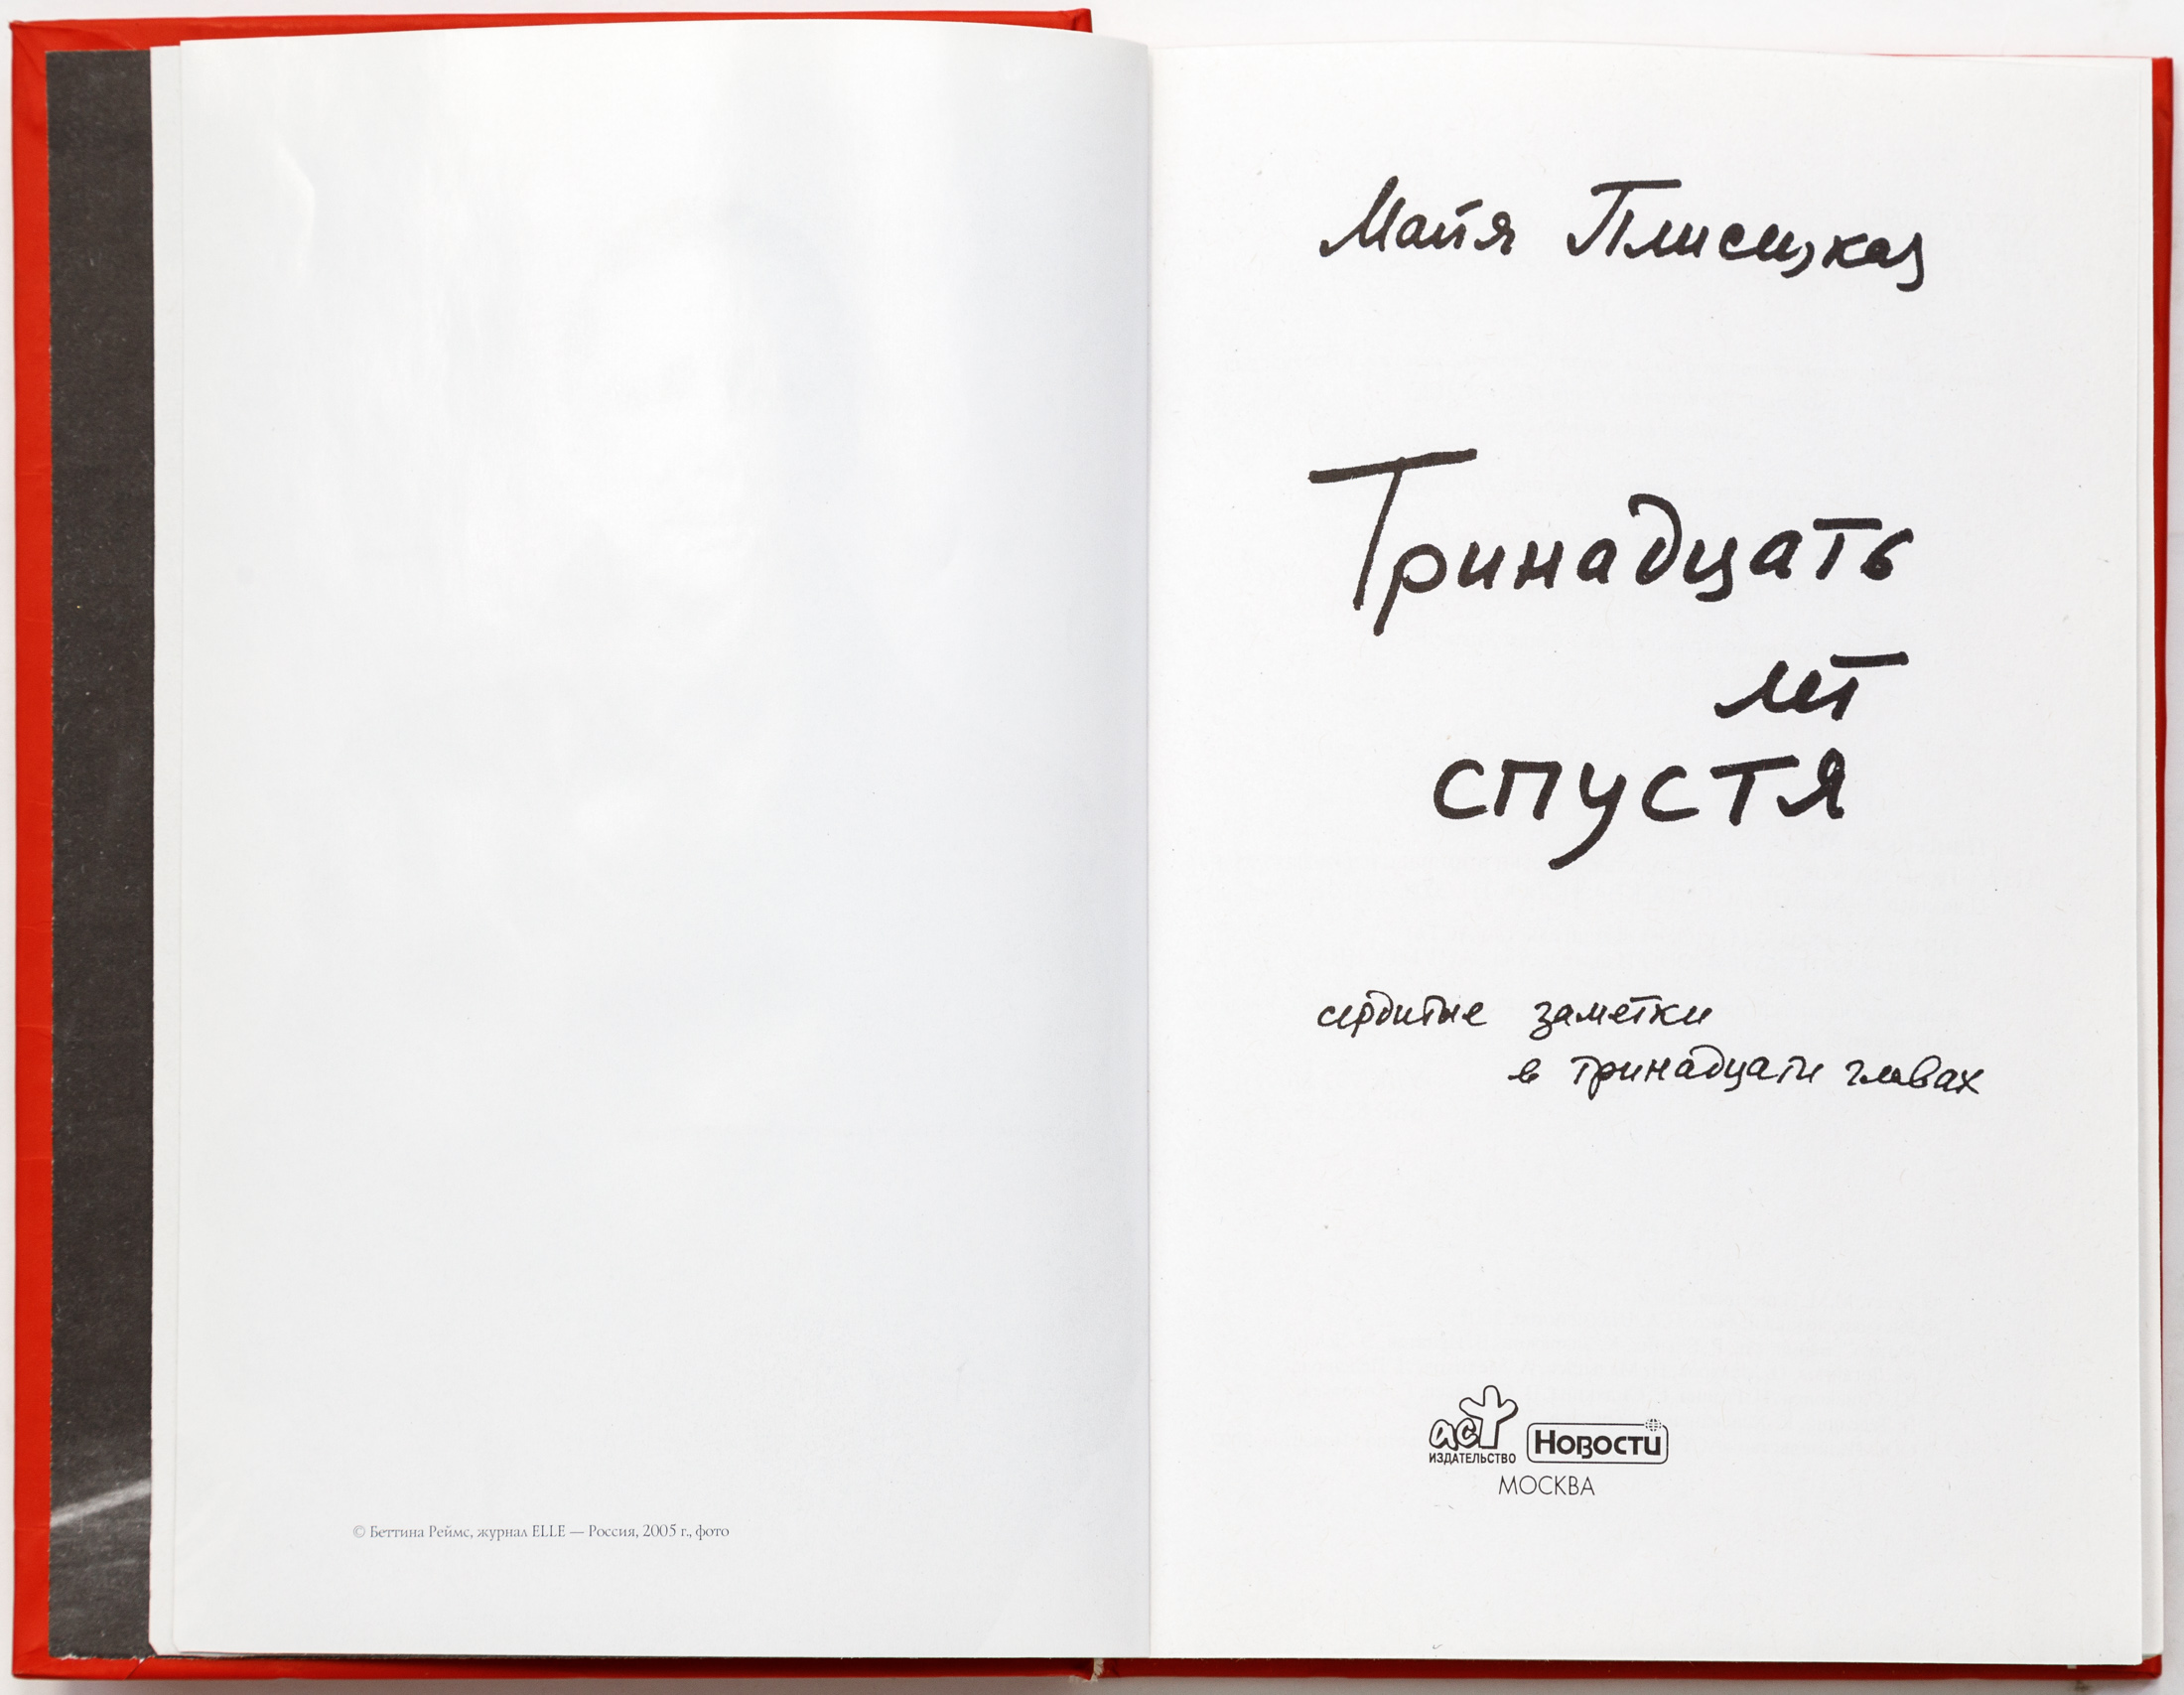 © Беттина Реймс, журнал ELLE — Россия, 2005 г., фото
Майя Плисецкая
Тринадцать
лет
спустя
сердитые заметки
в тринадцати главах
аст
ИЗДАТЕЛЬСТВО
Новости
МОСКВА